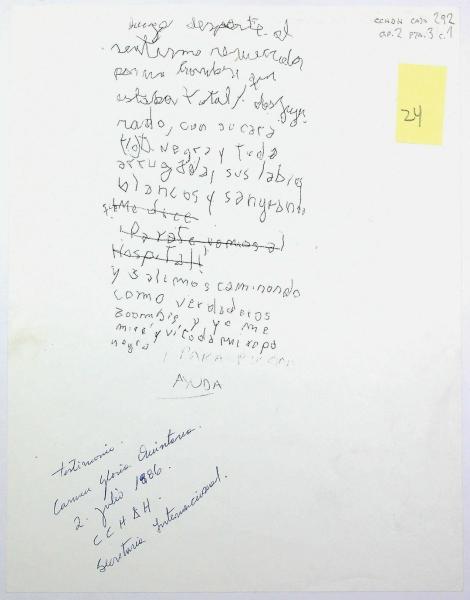 CCHDH CAJA 292
cp.2 pza.3 c.1
24
luego desperte al
sentirme remecida
por un hombre que
estaba total/ desfigu
rado, con su cara
negra y toda
arrugada, sus labios
blancos y sangrando
Me dice
¡Parate vamos al
Hospital!
y salimos caminando
como verdaderos
zoombis y yo me
miré y vi toda mi ropa
negra
PARA
AYUDA
Testimonio.
Carmen Gloria Quintana.
2. julio 1986.
CCHDH.
Secretaria Internacional.